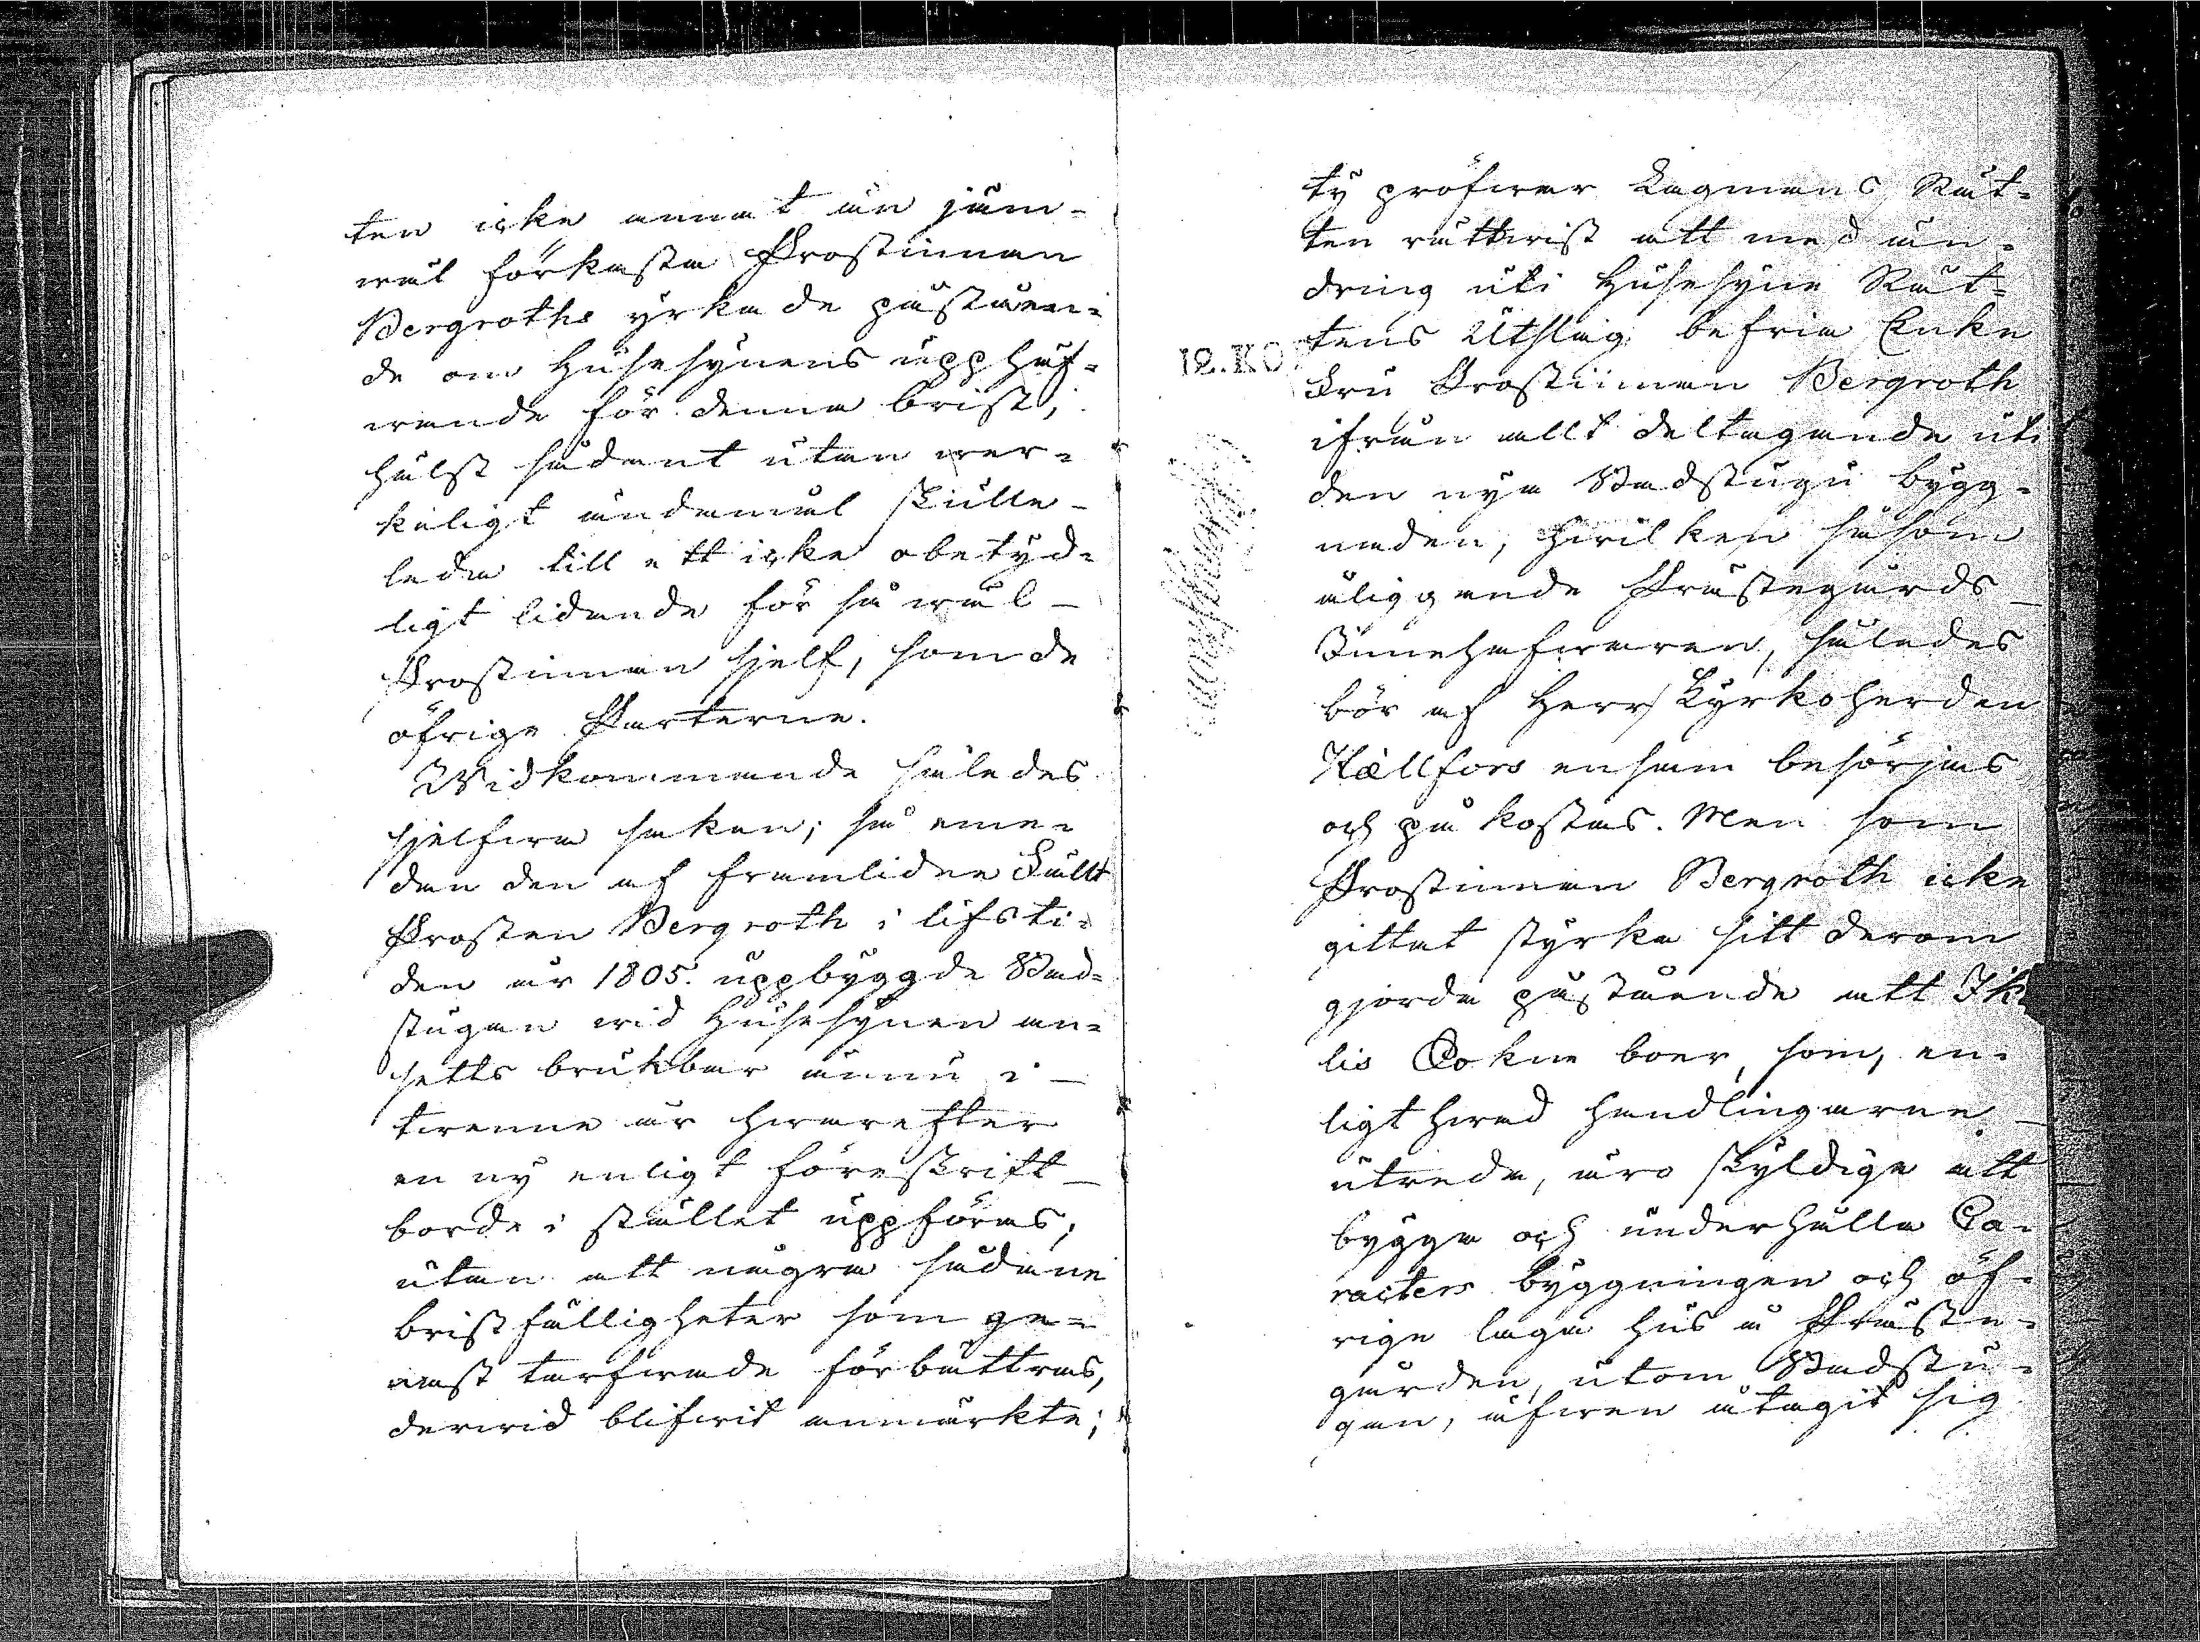 ten icke annat än jäm-
wäl förkasta Prostinnan
Bergroths yrkade påståen-
de om Husesynens upphäf-
wande för denna brist,
hälst sådant utan wer-
keligt ändamål skulle
leda till ett icke obetyd-
ligt lidande för så wäl
Prostinnan sjelf, som de
öfrige Parterne.
Widkommande således
sjelfwa saken; så eme-
dan den af framlidne Fält
Prosten Bergroth i lifsti-
den år 1805. uppbyggde Bad-
stugan wid Husesynen an-
setts brukbar ännu i
twenne år hwarefter
en ny enligt föreskrift
borde i stället uppföras;
utan att några sådane
bristfälligheter som ge-
nast tarfwade förbättras,
derwid blifwit anmärkte;
ty pröfwar Lagmans Rät-
ten rättwist att med än-
dring uti Husesyne Rät-
tens Utslag befria Enke
Fru Prostinnan Bergroth
ifrån allt deltagande uti
den nya Badstugu bygg-
naden, hwilken såsom
åliggande Prästegårds
Innehafwaren, således
bör af Herr Kyrkoherden
Hællfors ensam besörjas
och på kostas. Men som
Prostinnan Bergroth icke
gittat styrka sitt derom
gjorda påstående att
lis Sokne boer, som, en-
ligt hwad handlingarne
utreda, äro skyldige att
bygga och underhålla Ca-
racters byggningen och öf-
rige laga hus å Präste-
gården, utom Badstu-
gan, äfwen åtagit sig
12. KO